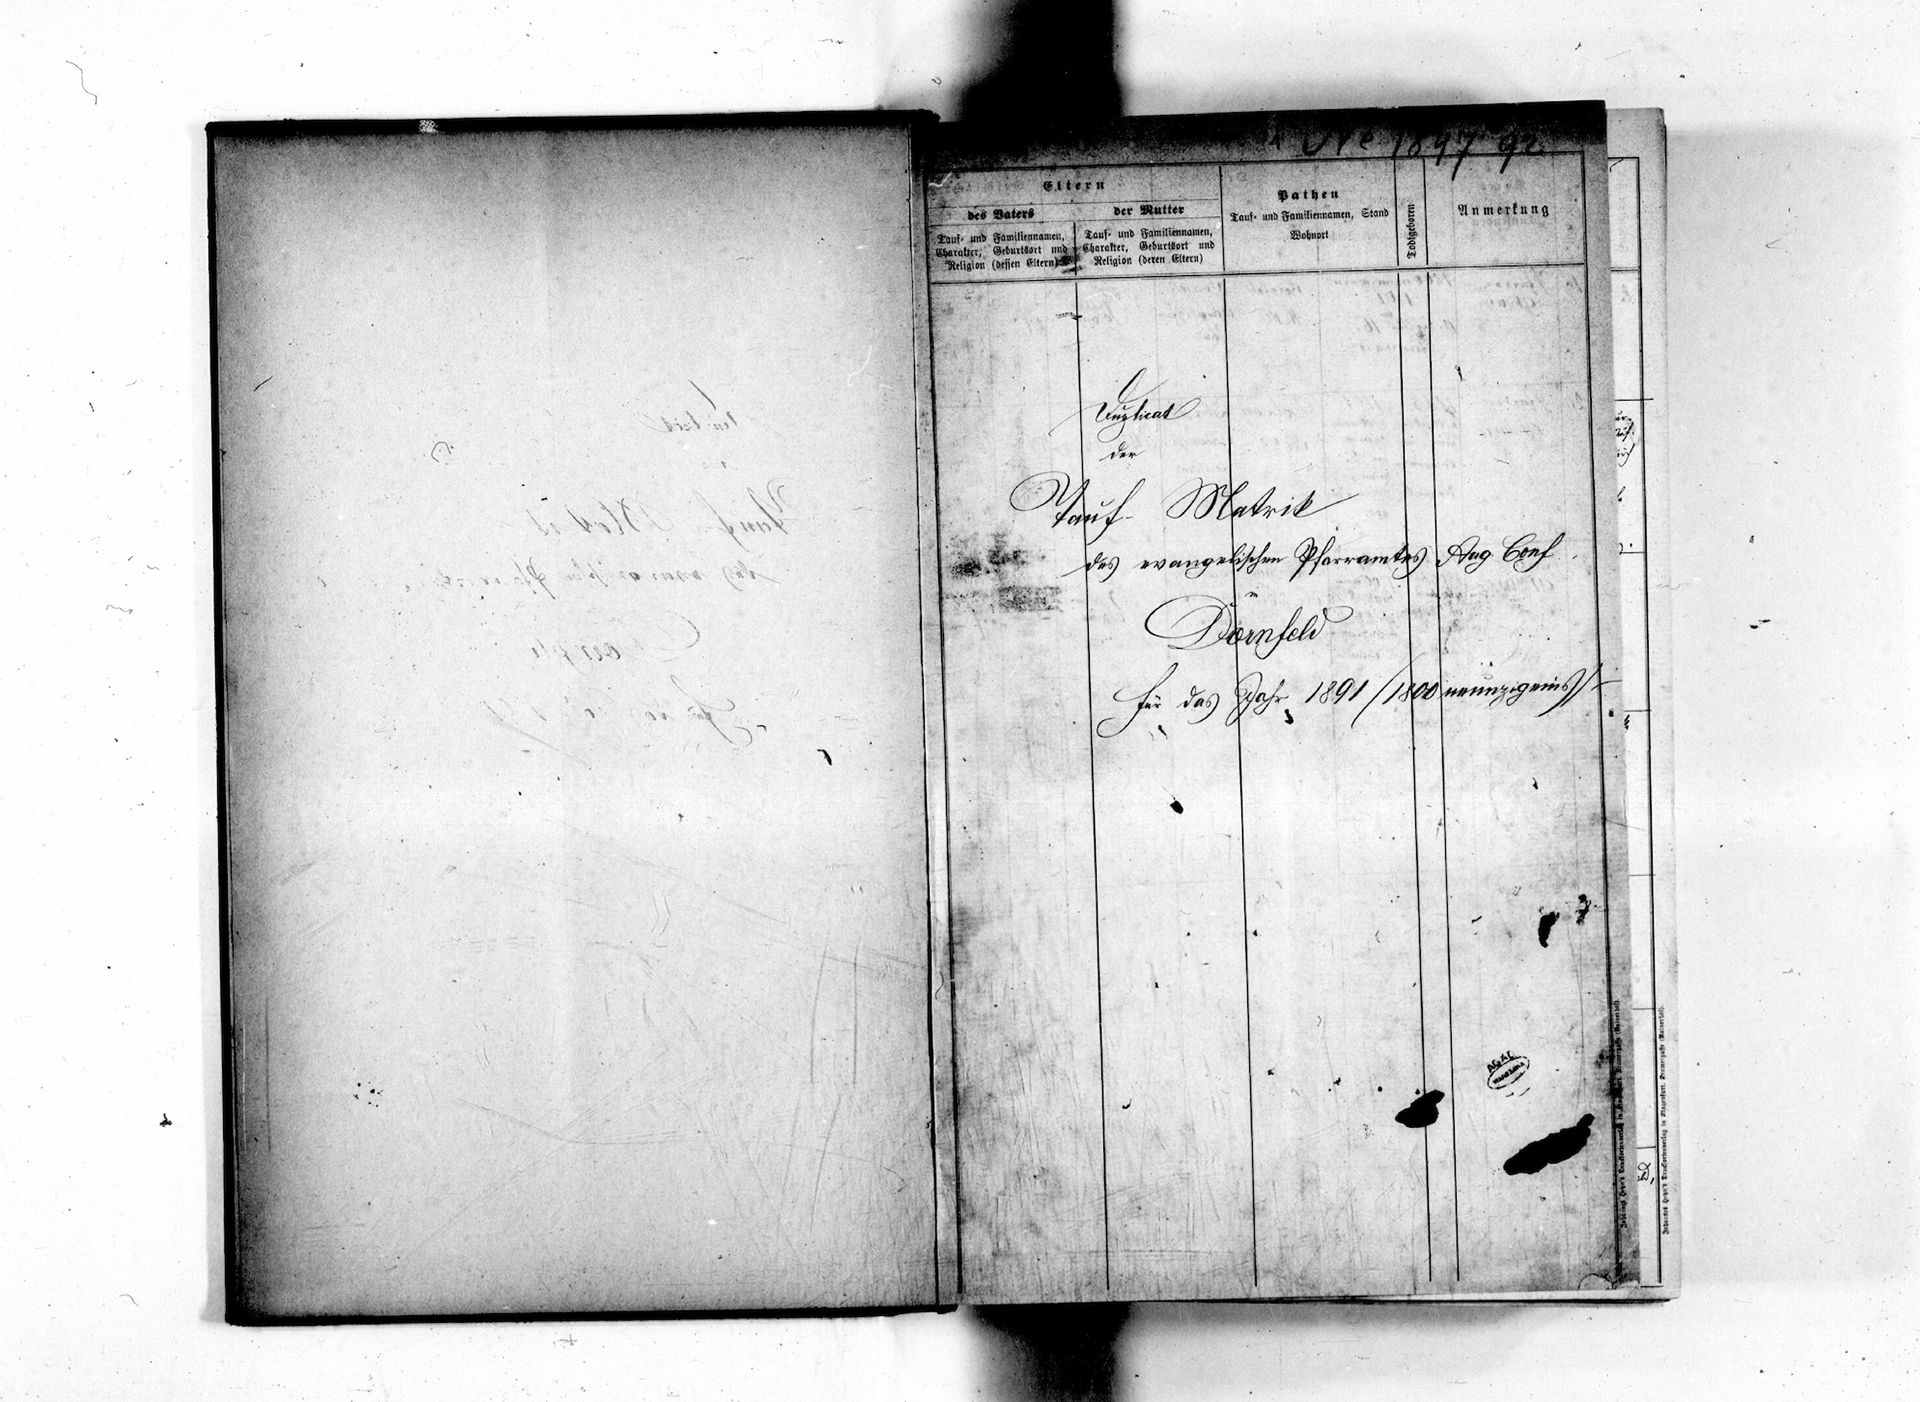 Nr 1897 92
Eltern
des Vaters
der Mutter
Pathen
Todtgeboren
Anmerkung
Tauf- und Familiennamen, Charakter, Geburtsort und Religion (dessen Eltern)
Tauf- und Familiennamen, Charakter, Geburtsort und Religion (deren Eltern)
Tauf- und Familiennamen, Stand
Wohnort
Duplicat
der
Tauf- Matrik
des evangelischen Pfarramtes Aug Conf.
in
Dornfeld
für das Jahr 1891 (1800 neunzigeins)
AGAD
WARSZAWA